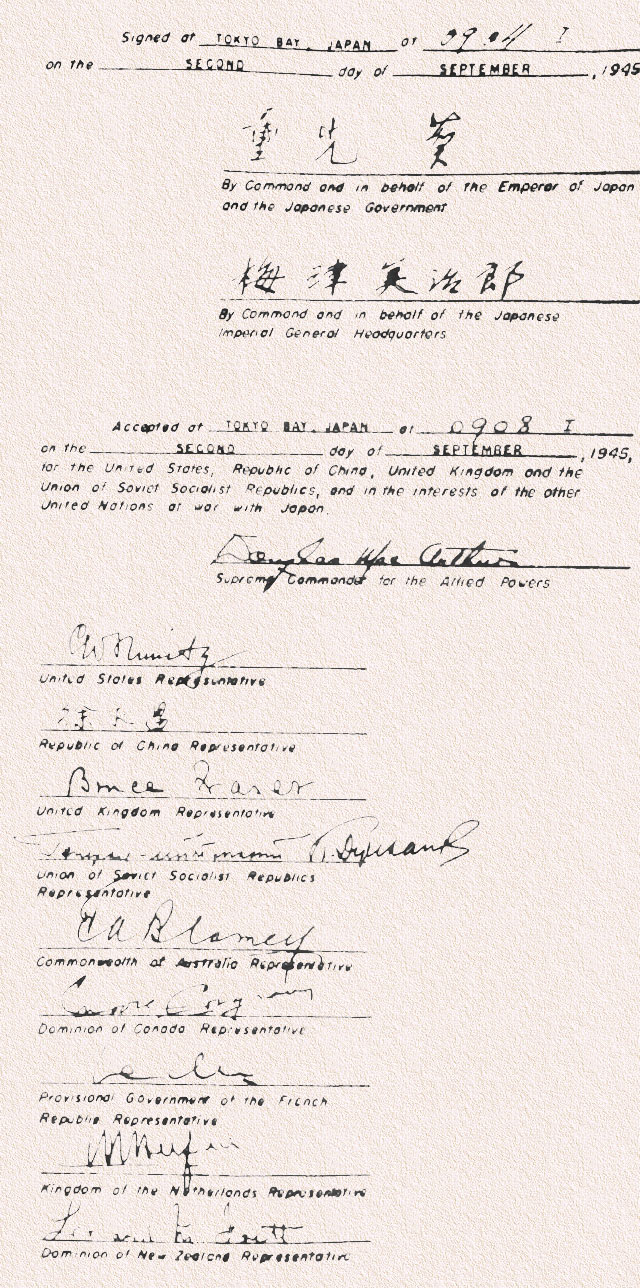 Signed at TOKYO BAY, JAPAN at 0904 I
on the SECOND day of SEPTEMBER, 1945
重光 葵
By Command and in behalf of the Emperor of Japan
and the Japanese Government
梅津美治郎
By Command and in behalf of the Japanese
Imperial General Headquarters
Accepted at TOKYO BAY, JAPAN at 0908 I
on the SECOND day of SEPTEMBER, 1945,
for the United States, Republic of China, United Kingdom and the
Union of Soviet Socialist Republics, and in the interests of the other
United Nations at war with Japan.
Douglas MacArthur
Supreme Commander for the Allied Powers
CW Nimitz
United States Representative
Republic of China Representative
Bruce Fraser
United Kingdom Representative
Union of Soviet Socialist Republics
Representative
T A Blamey
Commonwealth of Australia Representative
Dominion of Canada Representative
Provisional Government of the French
Republic Representative
Kingdom of the Netherlands Representative
Dominion of New Zealand Representative